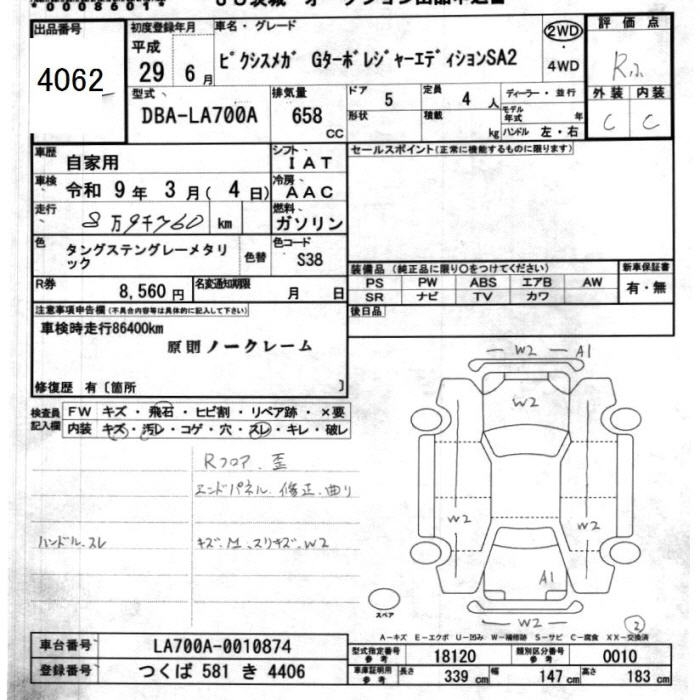 出品番号
4062
初度登録年月
平成
29年 6月
車名・グレード
ピクシスメガ GターボレジャーエディションSA2
2WD
・
4WD
評価点
外装 内装
C C
型式
DBA-LA700A
排気量
658
CC
ドア
5
定員
4 人
形状
積載
kg
ディーラー・並行
モデル年式 年
ハンドル 左・右
車歴
自家用
シフト
IAT
車検
令和 9年 3月(4日)
冷房
AAC
走行
8万9千760 km
燃料
ガソリン
色
タングステングレーメタリック
色替
色コード
S38
R券
8,560 円
名変通知期限
月 日
セールスポイント(正常に機能するものに限ります)
装備品 (純正品に限り○をつけてください)
PS PW ABS エアB AW
SR ナビ TV カワ
新車保証書
有・無
後日品
注意事項申告欄(不具合内容等は具体的に記入して下さい)
車検時走行86400km
原則ノークレーム
修復歴 有〔箇所 〕
検査員記入欄
FW キズ・飛石・ヒビ割・リペア跡・×要
内装 キズ・汚レ・コゲ・穴・スレ・キレ・破レ
Rフロア、歪
エンドパネル、修正、曲り
ハンドル、スレ
キズ、M、スリキズ、W2
W2 A1
W2
W2 W2
A1
W2
スペア
2
A－キズ E－エクボ U－凹み W－補修跡 S－サビ C－腐食 XX－交換済
車台番号
LA700A-0010874
登録番号
つくば 581 き 4406
型式指定番号
参考
18120
類別区分番号
参考
0010
車庫証明用
参考
長さ 339 cm 幅 147 cm 高さ 183 cm